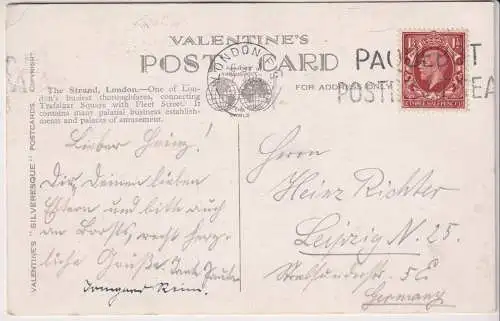 VALENTINE'S
POST CARD
FOR ADDRESS ONLY
LONDON F.S.
PAQUEBOT
POSTED AT SEA
The Strand, London.—One of Lon-
don's busiest thoroughfares, connecting
Trafalgar Square with Fleet Street. It
contains many palatial business establish-
ments and palaces of amusement.
VALENTINE'S "SILVERESQUE" POSTCARDS COPYRIGHT
Lieber Heinz!
Dir, Deinen lieben
Eltern und bitte auch
an recht herz-
liche Grüße. Tante Paula
Irmgard
Herrn
Heinz Richter
Leipzig N. 25.
5E
Germany